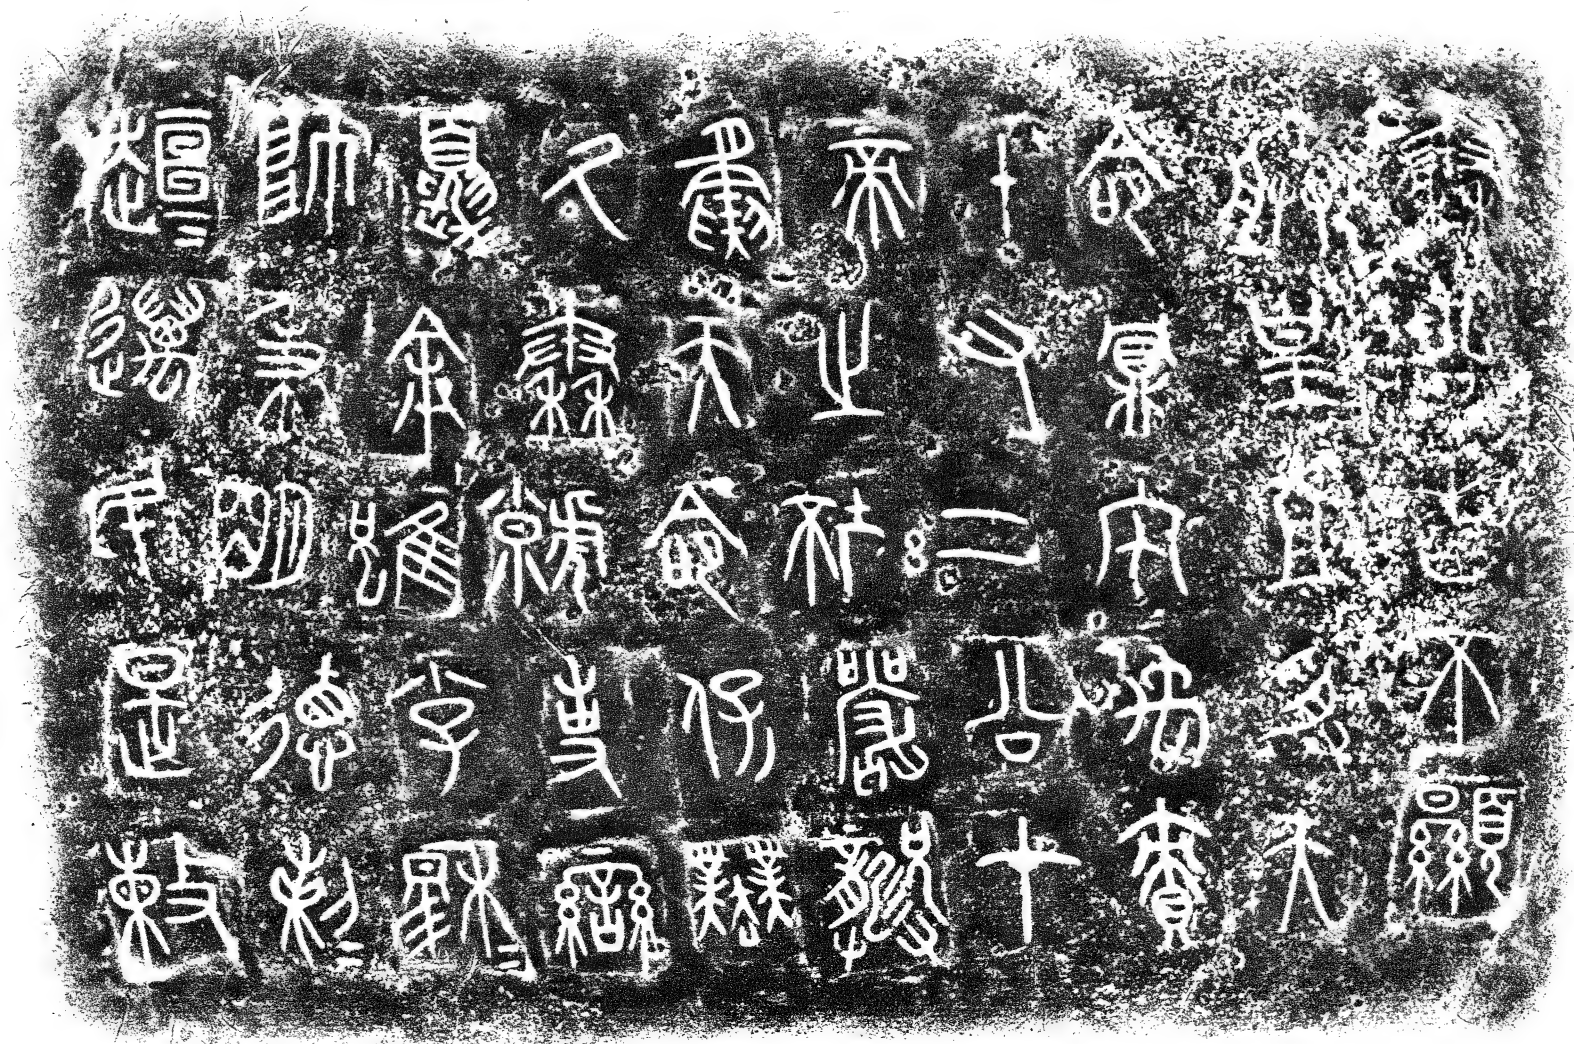 秦公曰不顯
朕皇且受天
命鼏宅禹賷
十又二公才
帝之坏嚴龏
夤天命保業
厥秦虩事蠻
夏余雖小子穆=
帥秉明德剌=
趄=邁民是敕